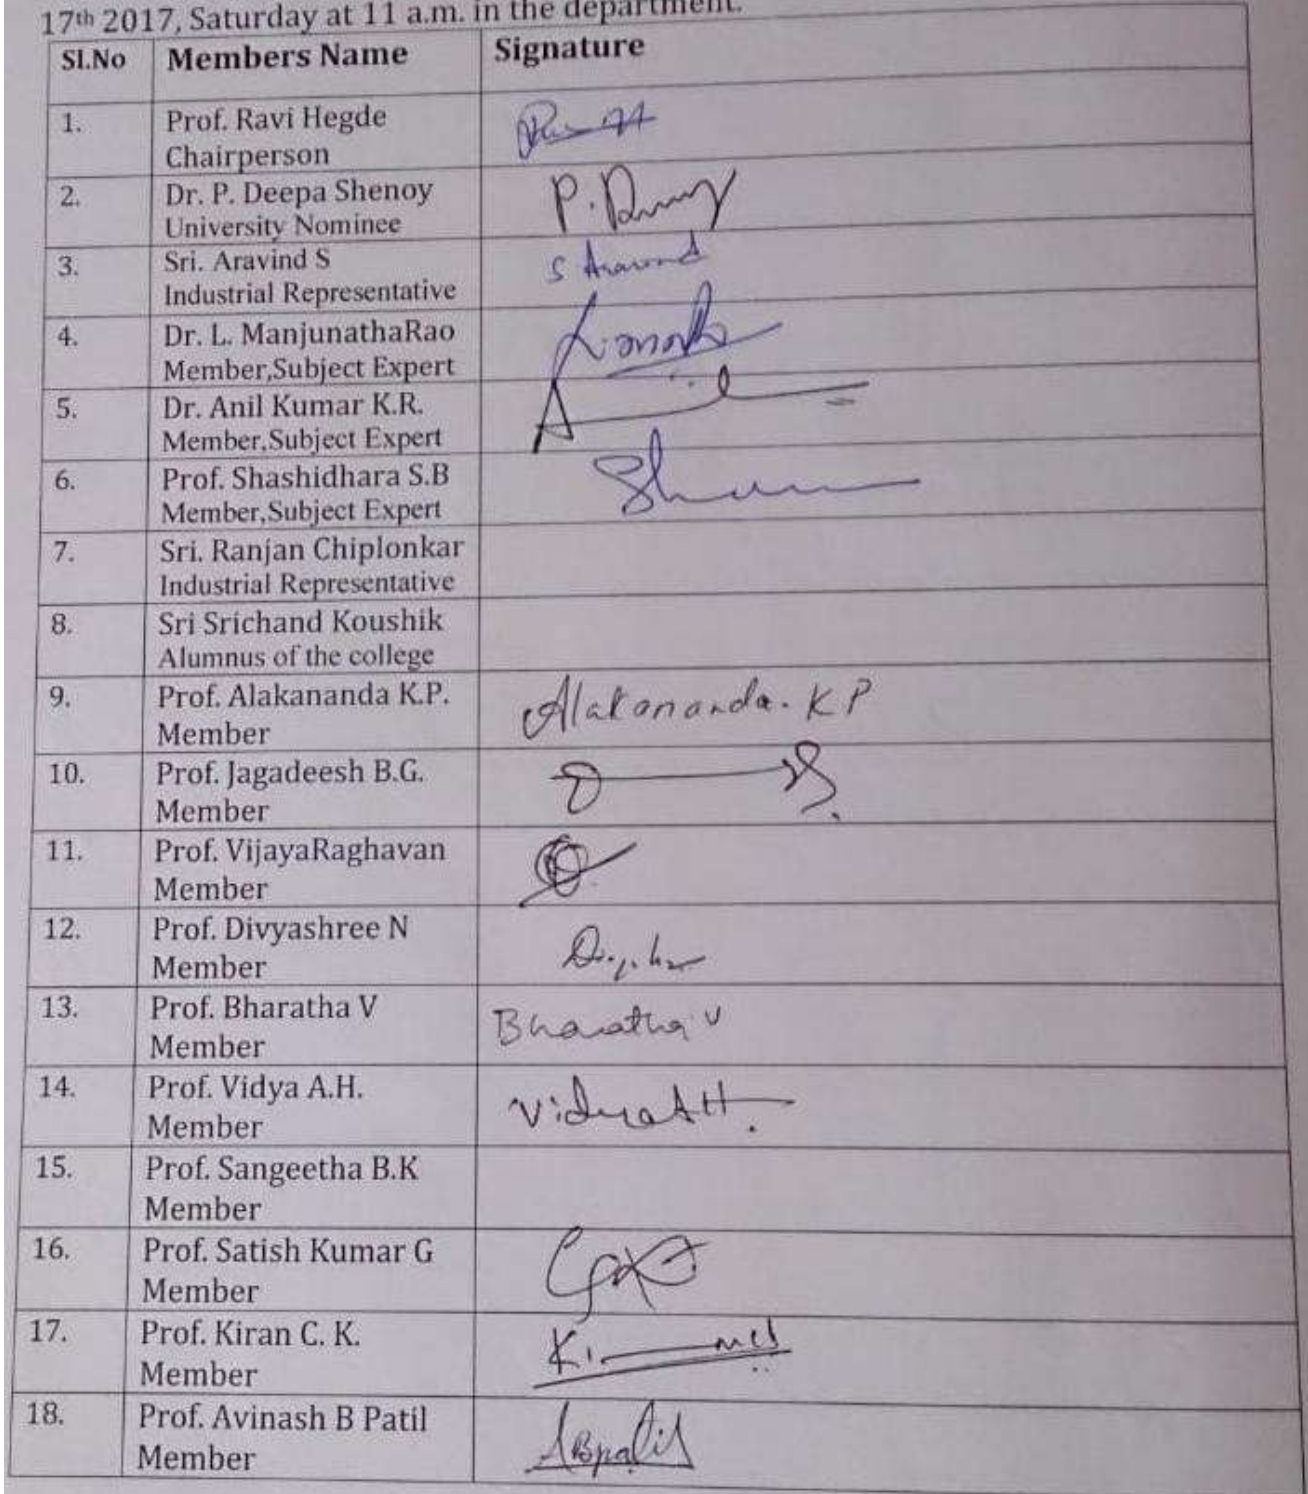 17th 2017, Saturday at 11 a.m. in the department.
Sl.No Members Name Signature
1. Prof. Ravi Hegde
Chairperson
2. Dr. P. Deepa Shenoy
University Nominee
3. Sri. Aravind S S Aravind
Industrial Representative
4. Dr. L. ManjunathaRao
Member,Subject Expert
5. Dr. Anil Kumar K.R.
Member,Subject Expert
6. Prof. Shashidhara S.B
Member,Subject Expert
7. Sri. Ranjan Chiplonkar
Industrial Representative
8. Sri Srichand Koushik
Alumnus of the college
9. Prof. Alakananda K.P. Alakananda. K P
Member
10. Prof. Jagadeesh B.G.
Member
11. Prof. VijayaRaghavan
Member
12. Prof. Divyashree N
Member
13. Prof. Bharatha V Bharatha V
Member
14. Prof. Vidya A.H. Vidya A H.
Member
15. Prof. Sangeetha B.K
Member
16. Prof. Satish Kumar G
Member
17. Prof. Kiran C. K.
Member
18. Prof. Avinash B Patil ABpatil
Member